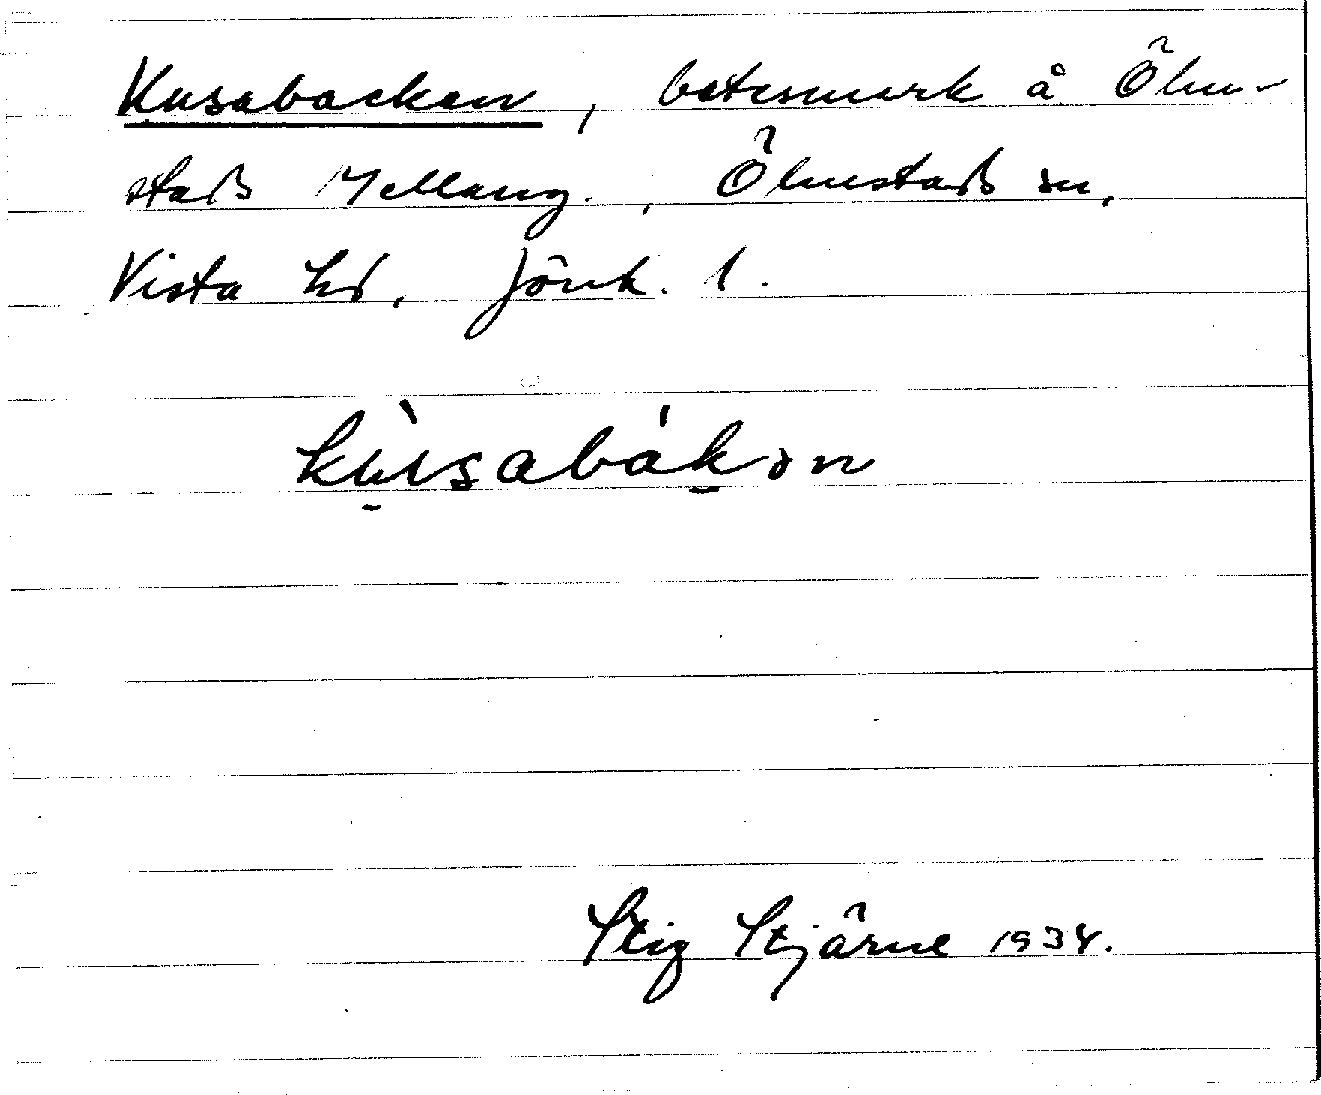 Kusabacken, betesmark å Ölm-
stads Mellang., Ölmstads sn,
Vista hd, Jönk. l.
kùsabákən
Stig Stjärne 1934.